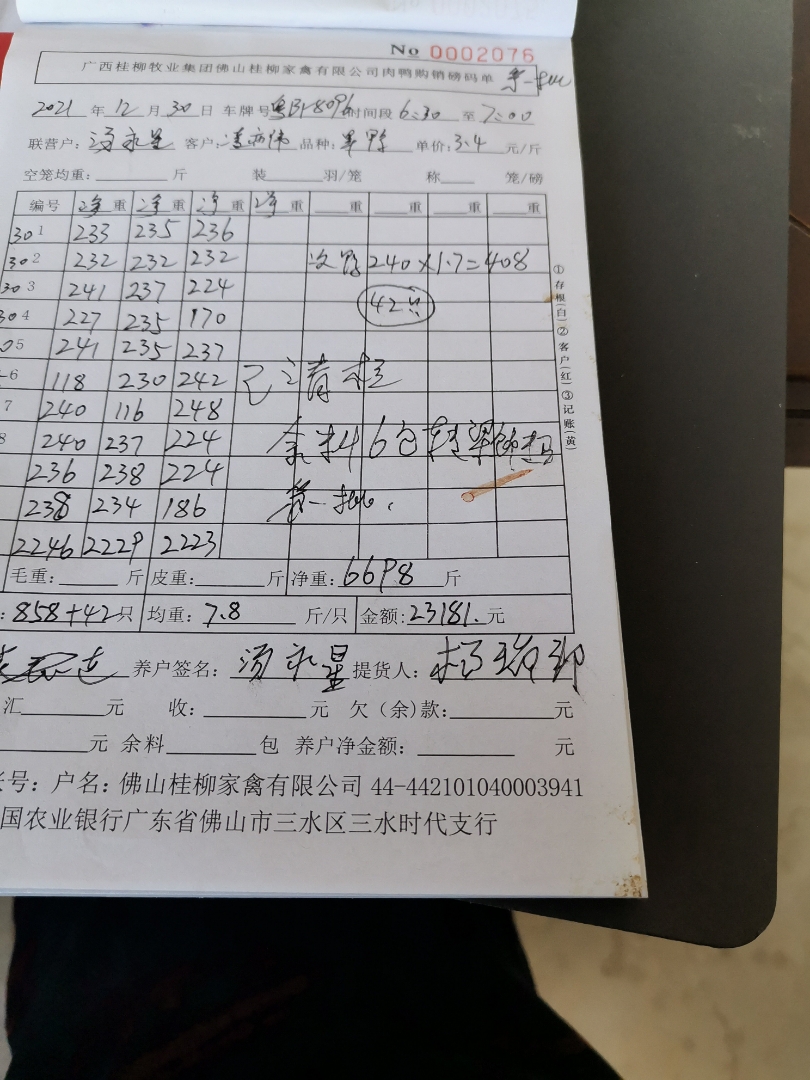 No 0002076
广西桂柳牧业集团佛山桂柳家禽有限公司肉鸭购销磅码单 第一批
2021 年 12 月 30 日 车牌号 时间段 6:30 至 7:00
联营户: 汤永星 客户: 品种: 单价: 3.4 元/斤
空笼均重: 斤 装 羽/笼 称 笼/磅
编号 净重 净重 净重 净重 重 重 重 重
301 233 235 236
302 232 232 232 次鸭 240×1.7=408
303 241 237 224
304 227 235 170 42只
05 241 235 237
6 118 230 242 已清栏
7 240 116 248
8 240 237 224 余料6包转
236 238 224
238 234 186 第一批.
2246 2229 2223
①存根(白)②客户(红)③记账(黄)
毛重: 斤 皮重: 斤 净重: 6698 斤
: 858+42只 均重: 7.8 斤/只 金额: 23181. 元
养户签名: 汤永星 提货人:
汇 元 收: 元 欠(余)款: 元
元 余料 包 养户净金额: 元
号: 户名: 佛山桂柳家禽有限公司 44-442101040003941
国农业银行广东省佛山市三水区三水时代支行